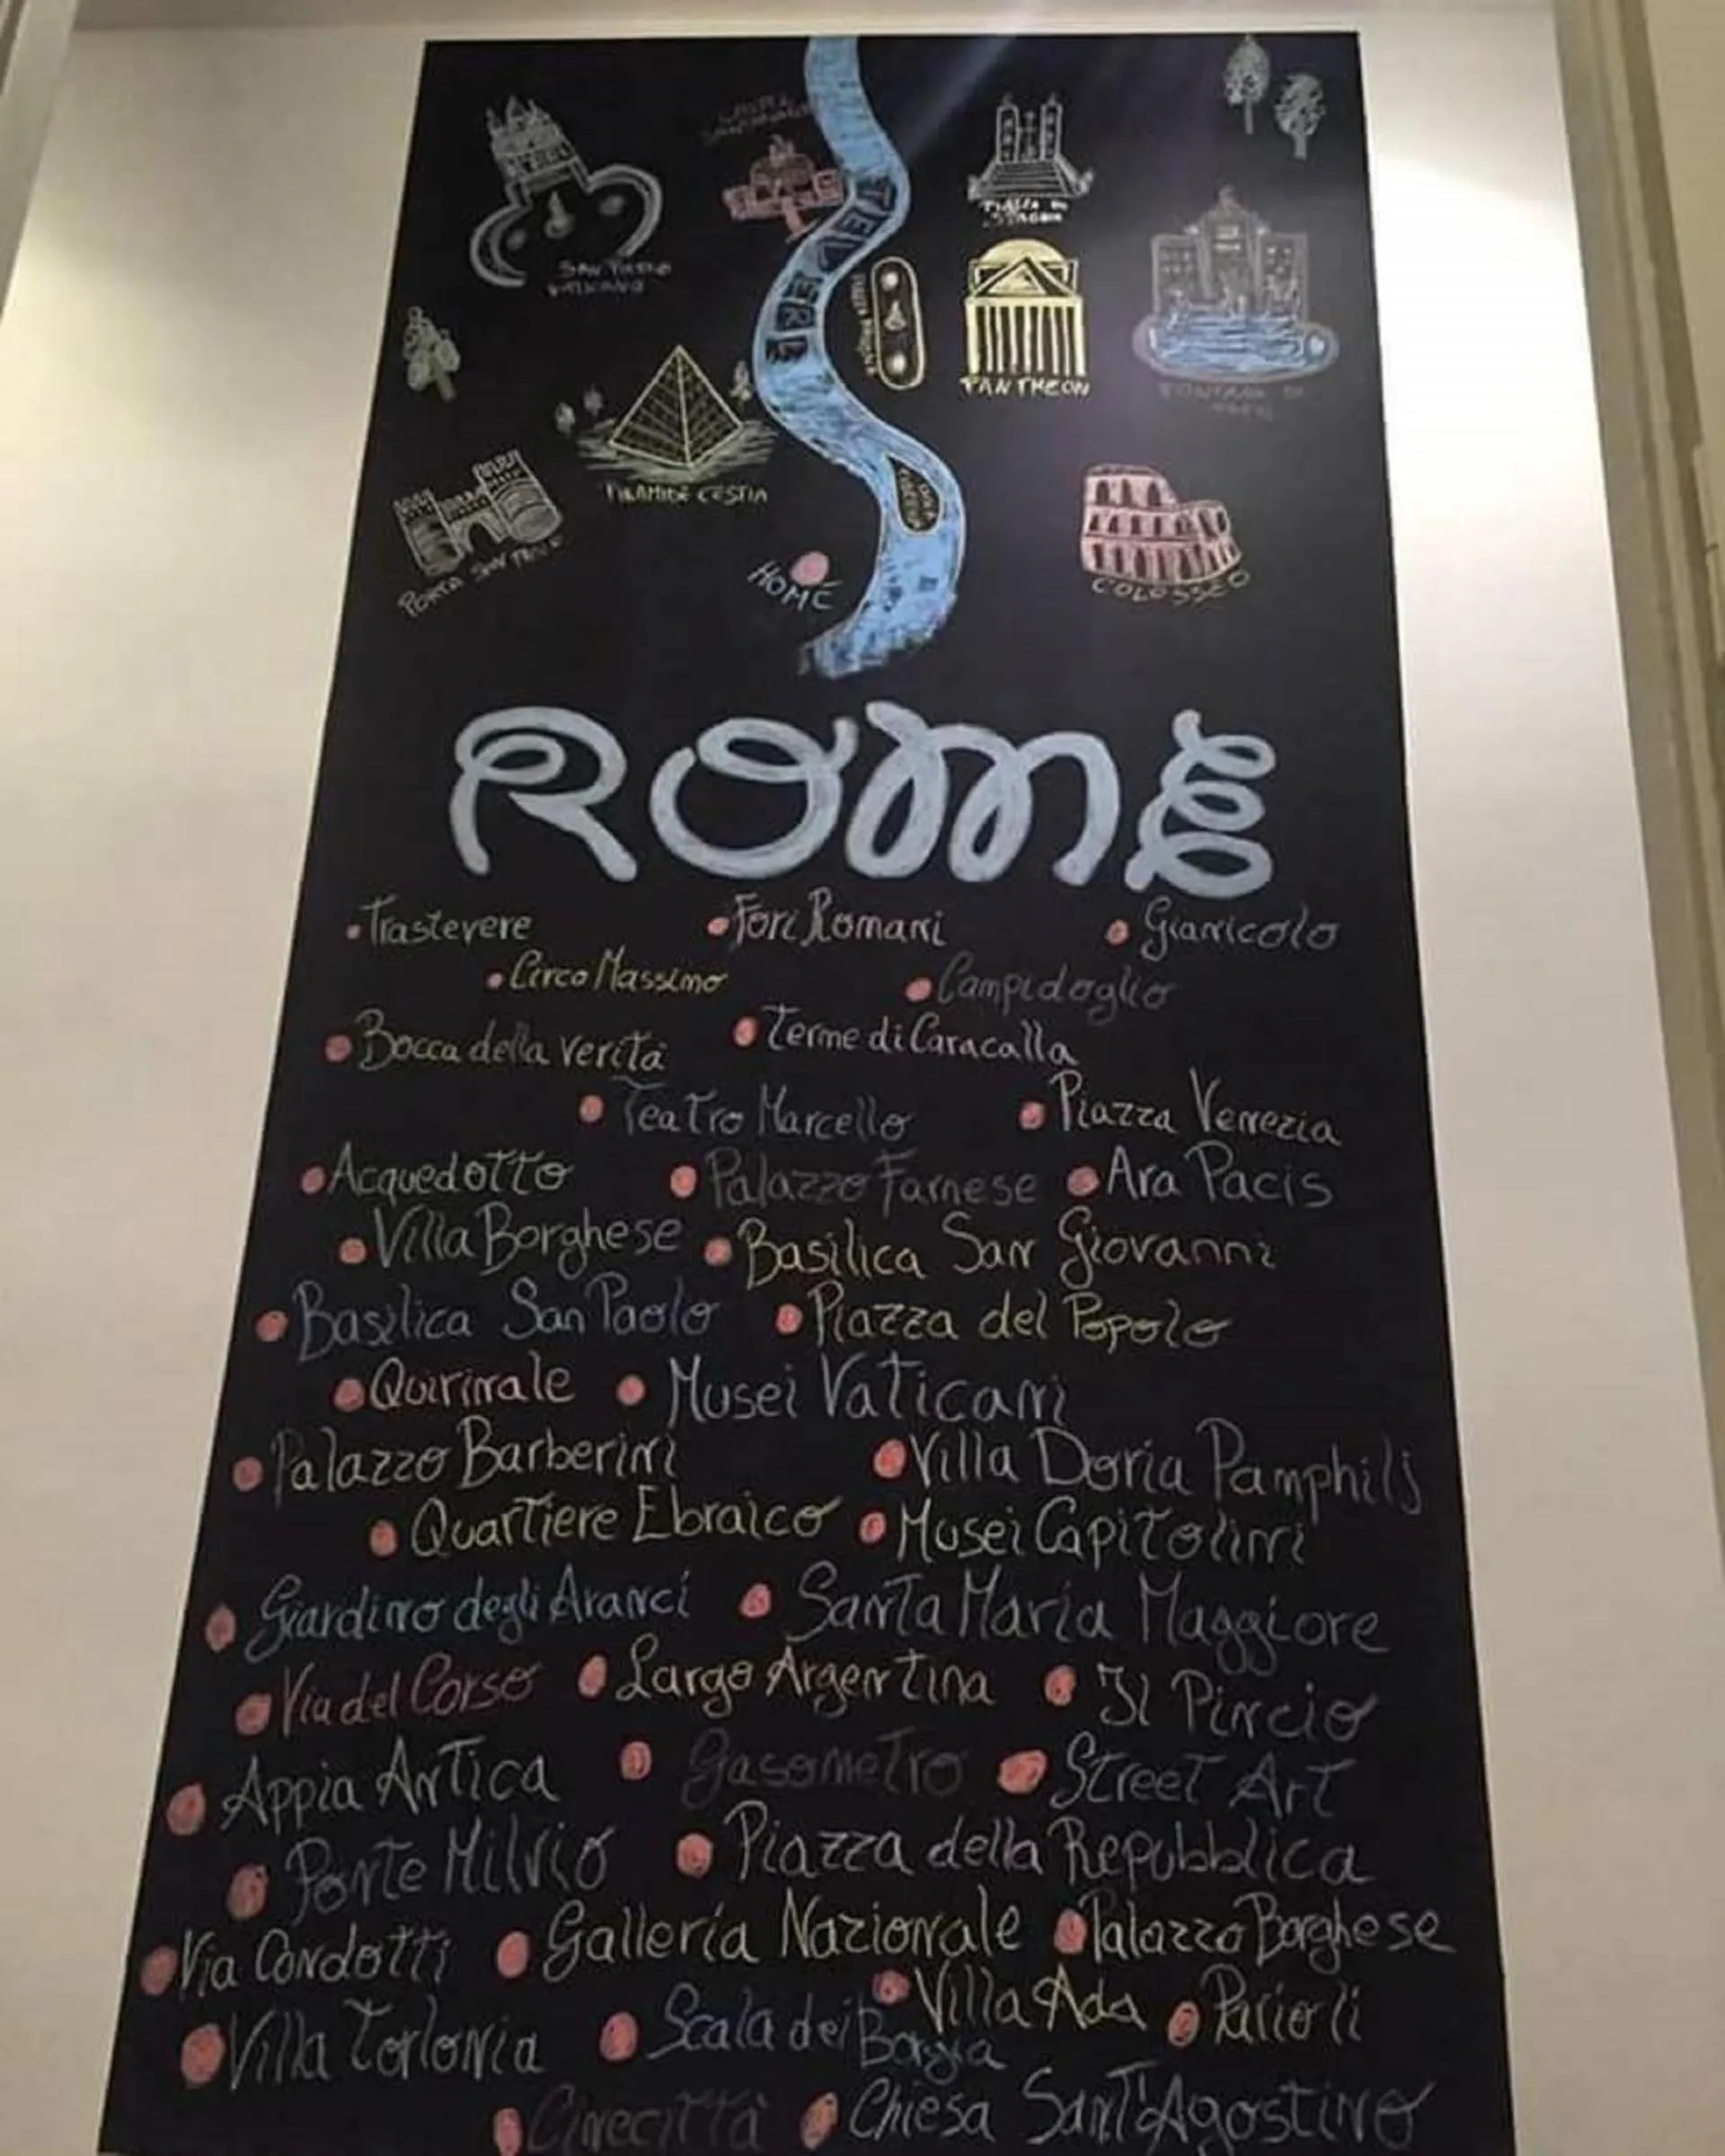 CASTEL
TEVERE
PIAZZA DI
SPAGNA
SAN PIETRO
VATICANO
PIAZZA NAVONA
PANTHEON
FONTANA DI
TREVI
PIRAMIDE CESTIA
PORTA SAN PAOLO
HOME
COLOSSEO
ROME
• Trastevere • Fori Romani • Gianicolo
• Circo Massimo • Campidoglio
• Bocca della verità • Terme di Caracalla
• Teatro Marcello • Piazza Venezia
• Acquedotto • Palazzo Farnese • Ara Pacis
• Villa Borghese • Basilica San Giovanni
• Basilica San Paolo • Piazza del Popolo
• Quirinale • Musei Vaticani
• Palazzo Barberini • Villa Doria Pamphilj
• Quartiere Ebraico • Musei Capitolini
• Giardino degli Aranci • Santa Maria Maggiore
• Via del Corso • Largo Argentina • Il Pincio
• Appia Antica • Gasometro • Street Art
• Ponte Milvio • Piazza della Repubblica
• Via Condotti • Galleria Nazionale • Palazzo Borghese
• Villa Torlonia • Scala dei Borgia • Villa Ada • Parioli
• Cinecittà • Chiesa Sant'Agostino